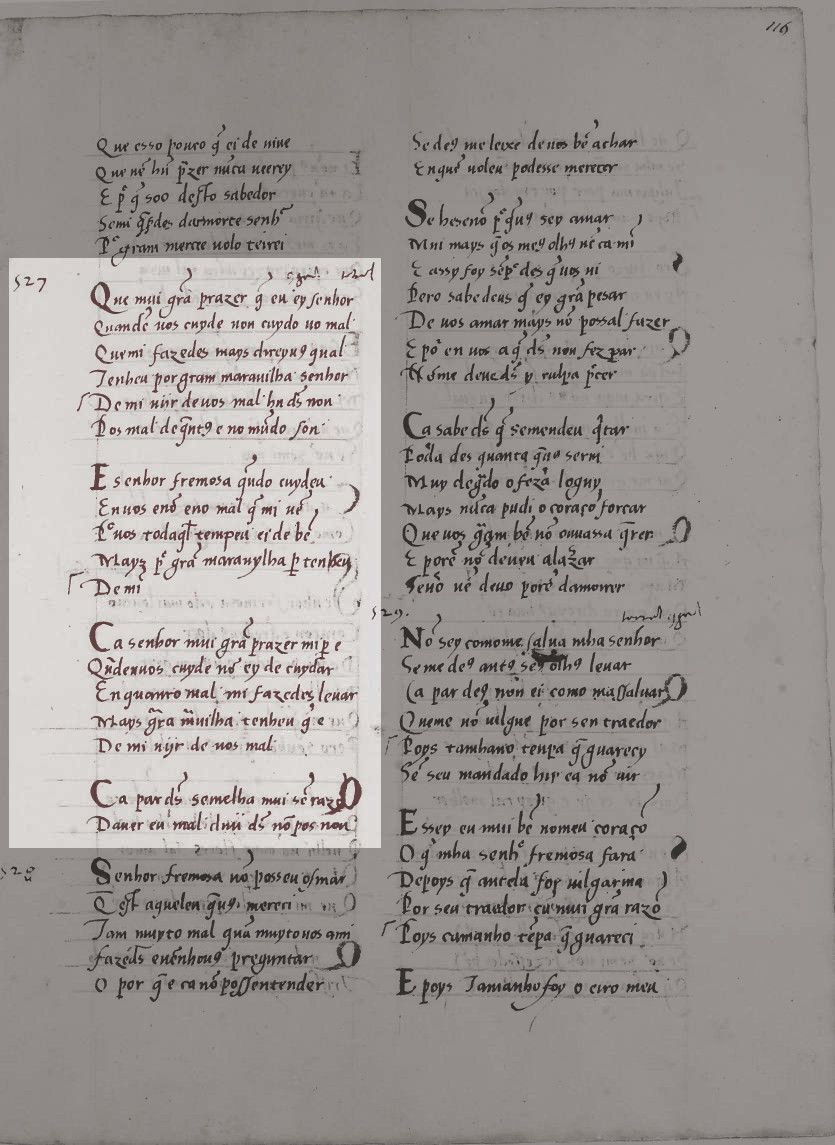 116
Que esso pouco q̃ ei de uiue
Que nẽ hũ p̃zer nũca ueerey
E p̃ q̃ soo desto sabedor
Semi q̃rdes dar morte senhᵒ
Pᵒ gram mercee uolo terrei
527
Que mui grã prazer q̃ eu ey senhor
Quandẽ uos cuyde non cuydo no mal
Quemi fazedes mays direyuꝯ qual
Tenheu por gram marauilha senhor
De mi uijr de uos mal hu ds̃ non
Pos mal de q̃ntꝯ e no mũdo son
E senhor fremosa q̃ndo cuydeu
En uos enõ eno mal q̃ mi uẽ
Pᵒ uos todaql̃ tempeu ei de bẽ
Mays pᵒ grã marauylha p̃ tenheu
De mi
Ca senhor mui grã prazer mi p̃ e
Qũdenuos cuyde nõ ey de cuydar
En quanto mal mi fazedes leuar
Mays grã m̃uilha tenheu q̃ e
De mi uijr de uos mal
Ca par ds̃ semelha mui sẽ razõ
Dauer eu mal duu ds̃ nõ pos non
528
Senhor fremosa nõ posseu osmar
Q̃ est aquelen q̃uꝯ mereci
Tam muyto mal quã muyto uos ami
fazeds̃ euẽnhouꝯ preguntar
O por q̃ e ca nõ possentender
Se deꝯ me leixe de uos bẽ achar
En que uoleu podesse merecer
Se he senõ pᵒ q̃uꝯ sey amar
Mui mays q̃ os meꝯ olhꝯ nẽ ca mĩ
E assy foy sẽpᵒ des q̃ uos ui
Pero sabe deus q̃ ey grã pesar
De uos amar mays nõ possal fazer
E poꝛ en uos a q̃ ds̃ non fez par
Nõ me deueds̃ y culpa põer
Ca sabe ds̃ q̃ semendeu q̃tar
Poda des quanta q̃uꝯ serui
Muy degᵃdo o fezᵃ loguy
Mays nũca pudi o coraçõ forcar
Que uos g̃m bẽ nõ ouuassa q̃rer
E porẽ nõ deueu alazerar
Senõ nẽ deuo porẽ damorrer
529
Nõ sey como me salua mha senhor
Se me deꝯ antꝯ seꝯ olhꝯ leuar
Ca par deꝯ nõn ei como massaluar
Queme nõ uilgue por sen traedor
Poys tamhano tenpa q̃ guarecy
Sẽ seu mandado hir ea nõ uir
E ssey eu mui bẽ nomeu coraço
O q̃ mha senhᵒ fremosa fara
Depoys q̃ antela for uilgarma
Por seu traedor cũ mui grã razõ
Poys camanho tẽpa q̃ guareci
E poys Tamanho foy o erro meu